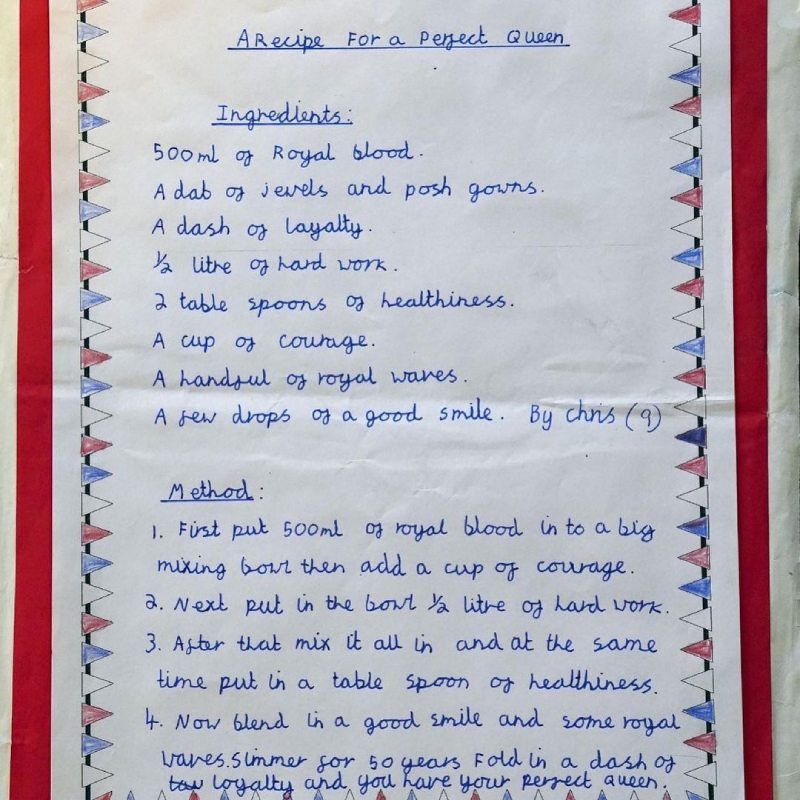 A Recipe For a Perfect Queen
Ingredients:
500ml of Royal blood.
A dab of jewels and posh gowns.
A dash of loyalty.
½ litre of hard work.
2 table spoons of healthiness.
A cup of courage.
A handful of royal waves.
A few drops of a good smile. By Chris (9)
Method:
1. First put 500ml of royal blood in to a big
mixing bowl then add a cup of courage.
2. Next put in the bowl ½ litre of hard work.
3. After that mix it all in and at the same
time put in a table spoon of healthiness.
4. Now blend in a good smile and some royal
waves. Simmer for 50 years Fold in a dash of
loyalty and you have your perfect queen.